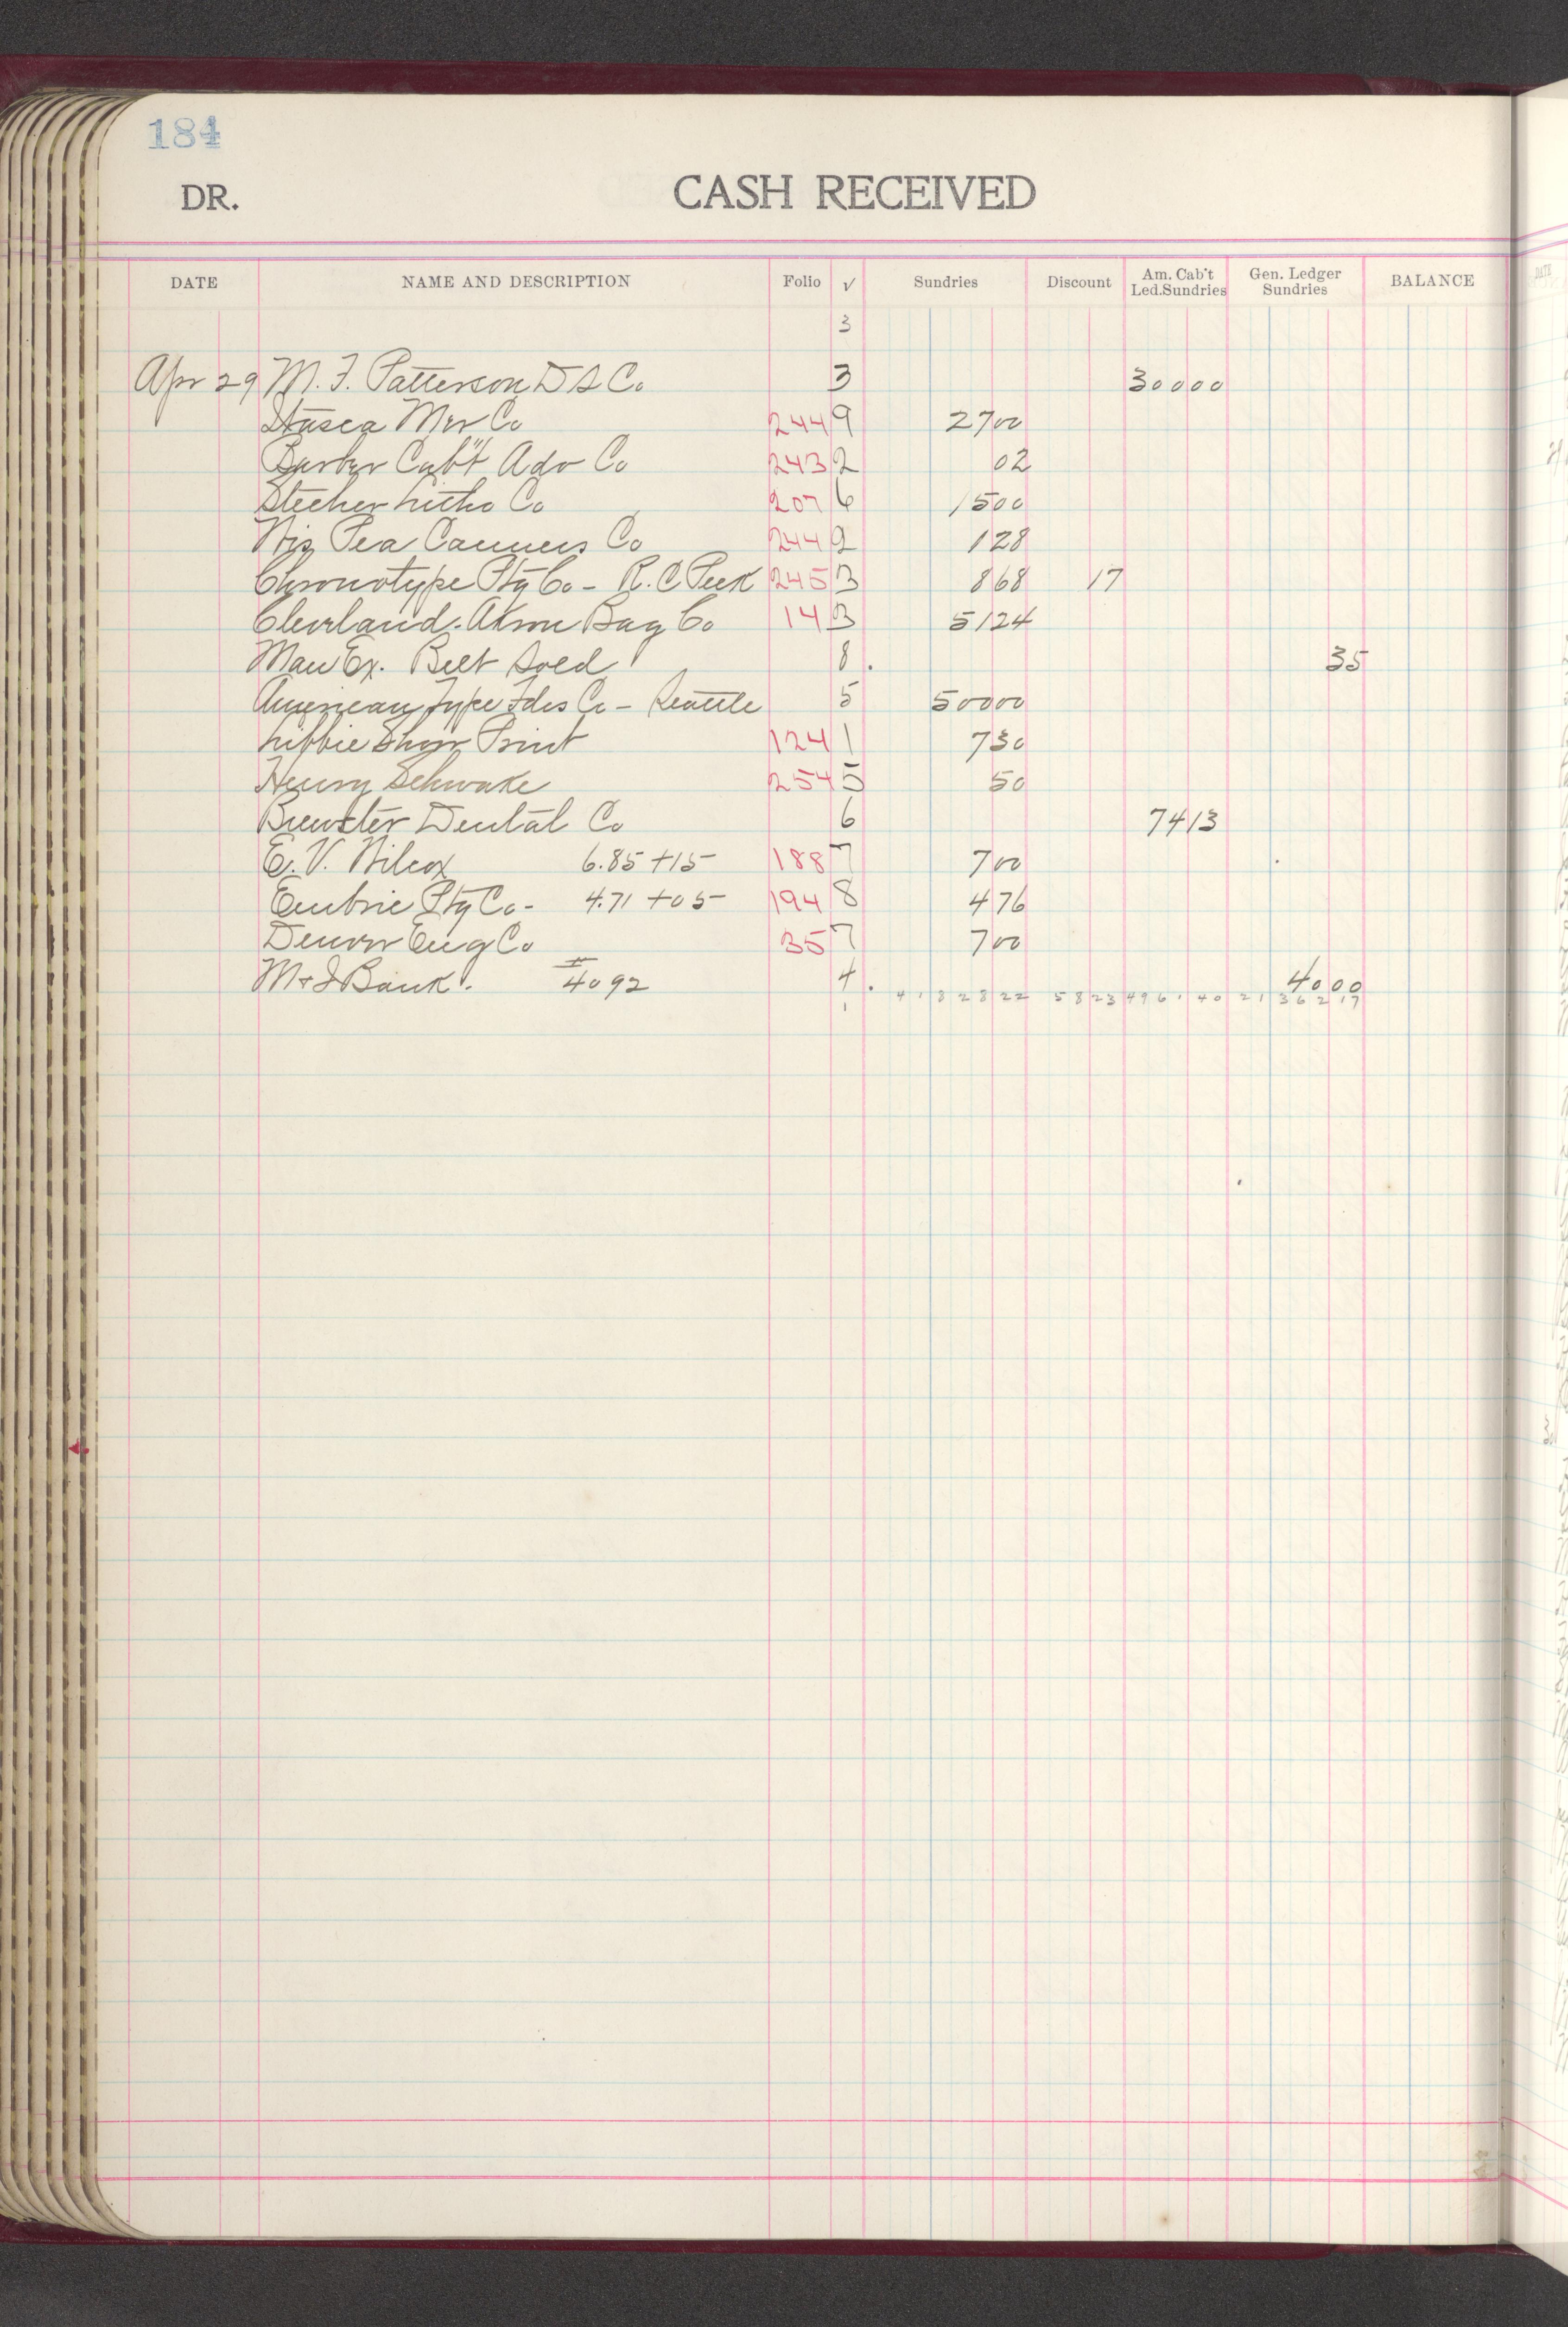 184
DR. CASH RECEIVED
DATE NAME AND DESCRIPTION Folio √ Sundries Discount Am. Cab't Led.Sundries Gen. Ledger Sundries BALANCE
3
Apr 29 M. F. Patterson D S Co 3 300 00
Itasca Mer Co 244 9 27 00
Barber Cab't Adv Co 243 2 02
Stecher Litho Co 207 6 15 00
Wis Pea Canners Co 244 2 1 28
Chronotype Ptg Co - R. C Peek 245 3 8 68 17
Cleveland-Akron Bag Co 14 3 51 24
Man Ex. Belt Sold 8 . 35
American Type Fdrs Co - Seattle 5 500 00
Libbie Show Print 124 1 7 30
Henry Schwake 254 5 50
Brewster Dental Co 6 74 13
E. V. Wilcox 6.85 + 15 188 7 7 00
Embrie Ptg Co - 4.71 + 05 194 8 4 76
Denver Eng Co 35 7 7 00
M + I Bank. # 4092 4 . 40 00
1 41828 22 58 23 4961 40 21362 17